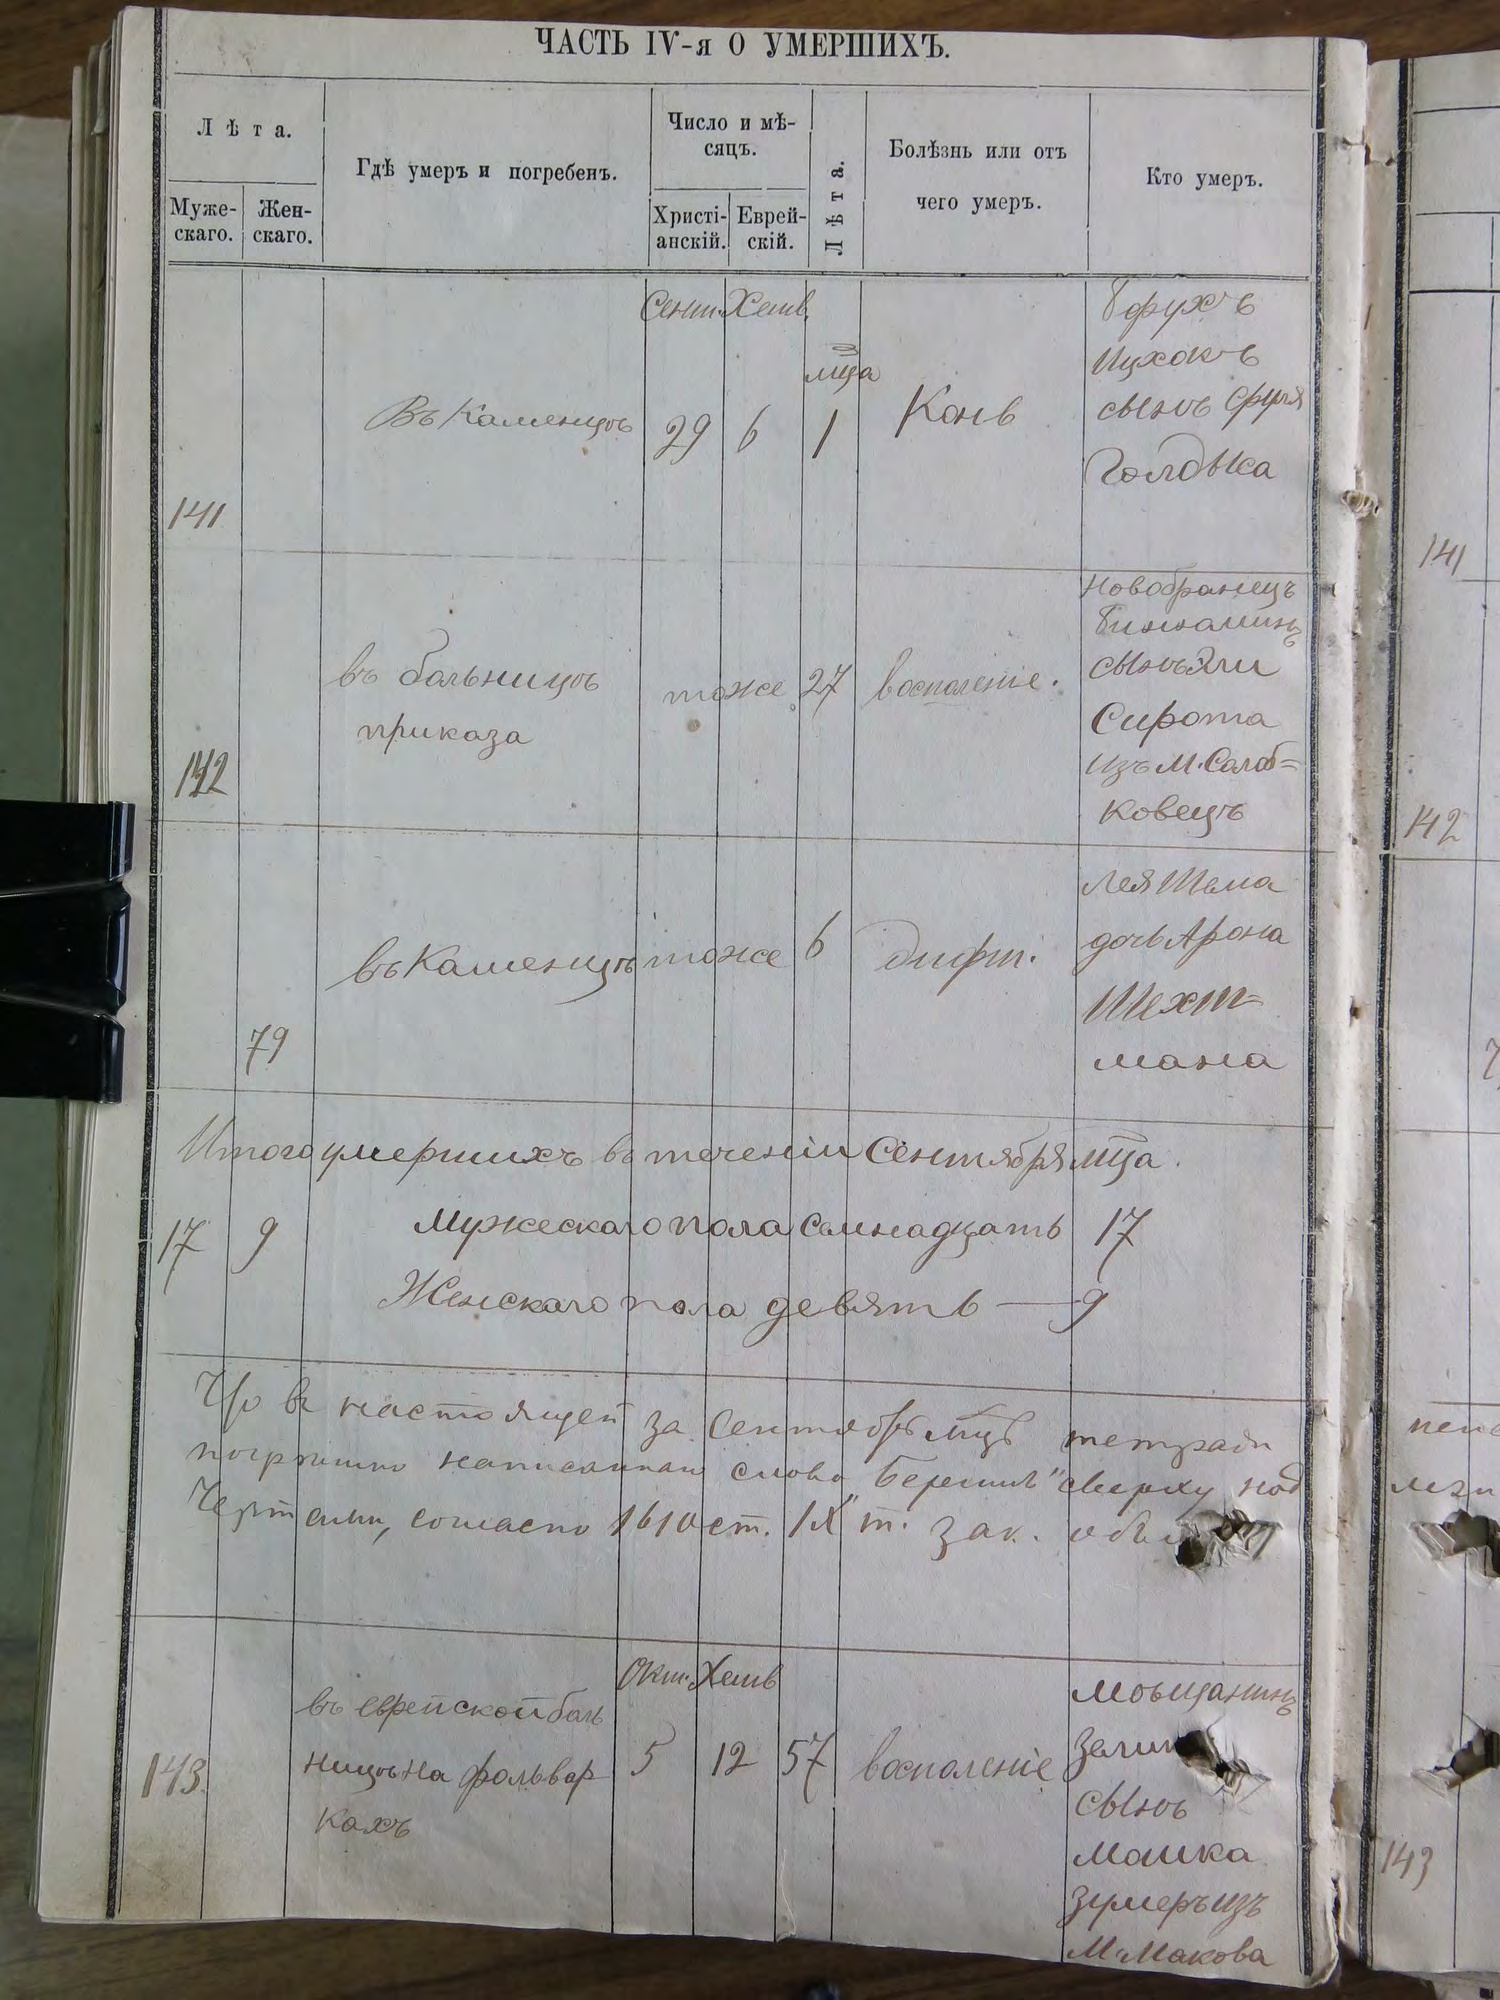 ЧАСТЬ IV-я О УМЕРШИХЪ.
Лѣта.
Муже-
скаго.
Жен-
скаго.
Гдѣ умеръ и погребенъ.
Число и мѣ-
сяцъ.
Христі-
анскій.
Еврей-
скій.
Лѣта.
Болѣзнь или отъ
чего умеръ.
Кто умеръ.
141
Въ Каменцѣ
Сент. Хешв.
29 6
мца
1
Конв
Ицхокъ
сынъ
Голдыка
142
въ больницѣ
приказа
тоже 27
воспаленіе.
Новобранецъ
Бинюминъ
сынъ Эли
Сирота
изъ М. Солоб=
ковецъ
79
въ Каменцѣ
тоже 6
дифт.
Лея Шема
дочь Арона
Шехт=
мана
Итого умершихъ въ теченіи Сентября мца.
17 9
Мужескаго пола семнадцать 17
Женскаго пола девять — 9
Что въ настоящей за Сентябрь мцъ тетради
написанная слово сверху под
чертами, согласно 1610 ст. IX т. зак.
143
въ еврейской боль
ницѣ на фольвар
кахъ
Окт. Хешв
5 12 57
воспаленіе
Мѣщанинъ
сынъ
Мошка
Зумеръ изъ
М. Макова
141
142
143